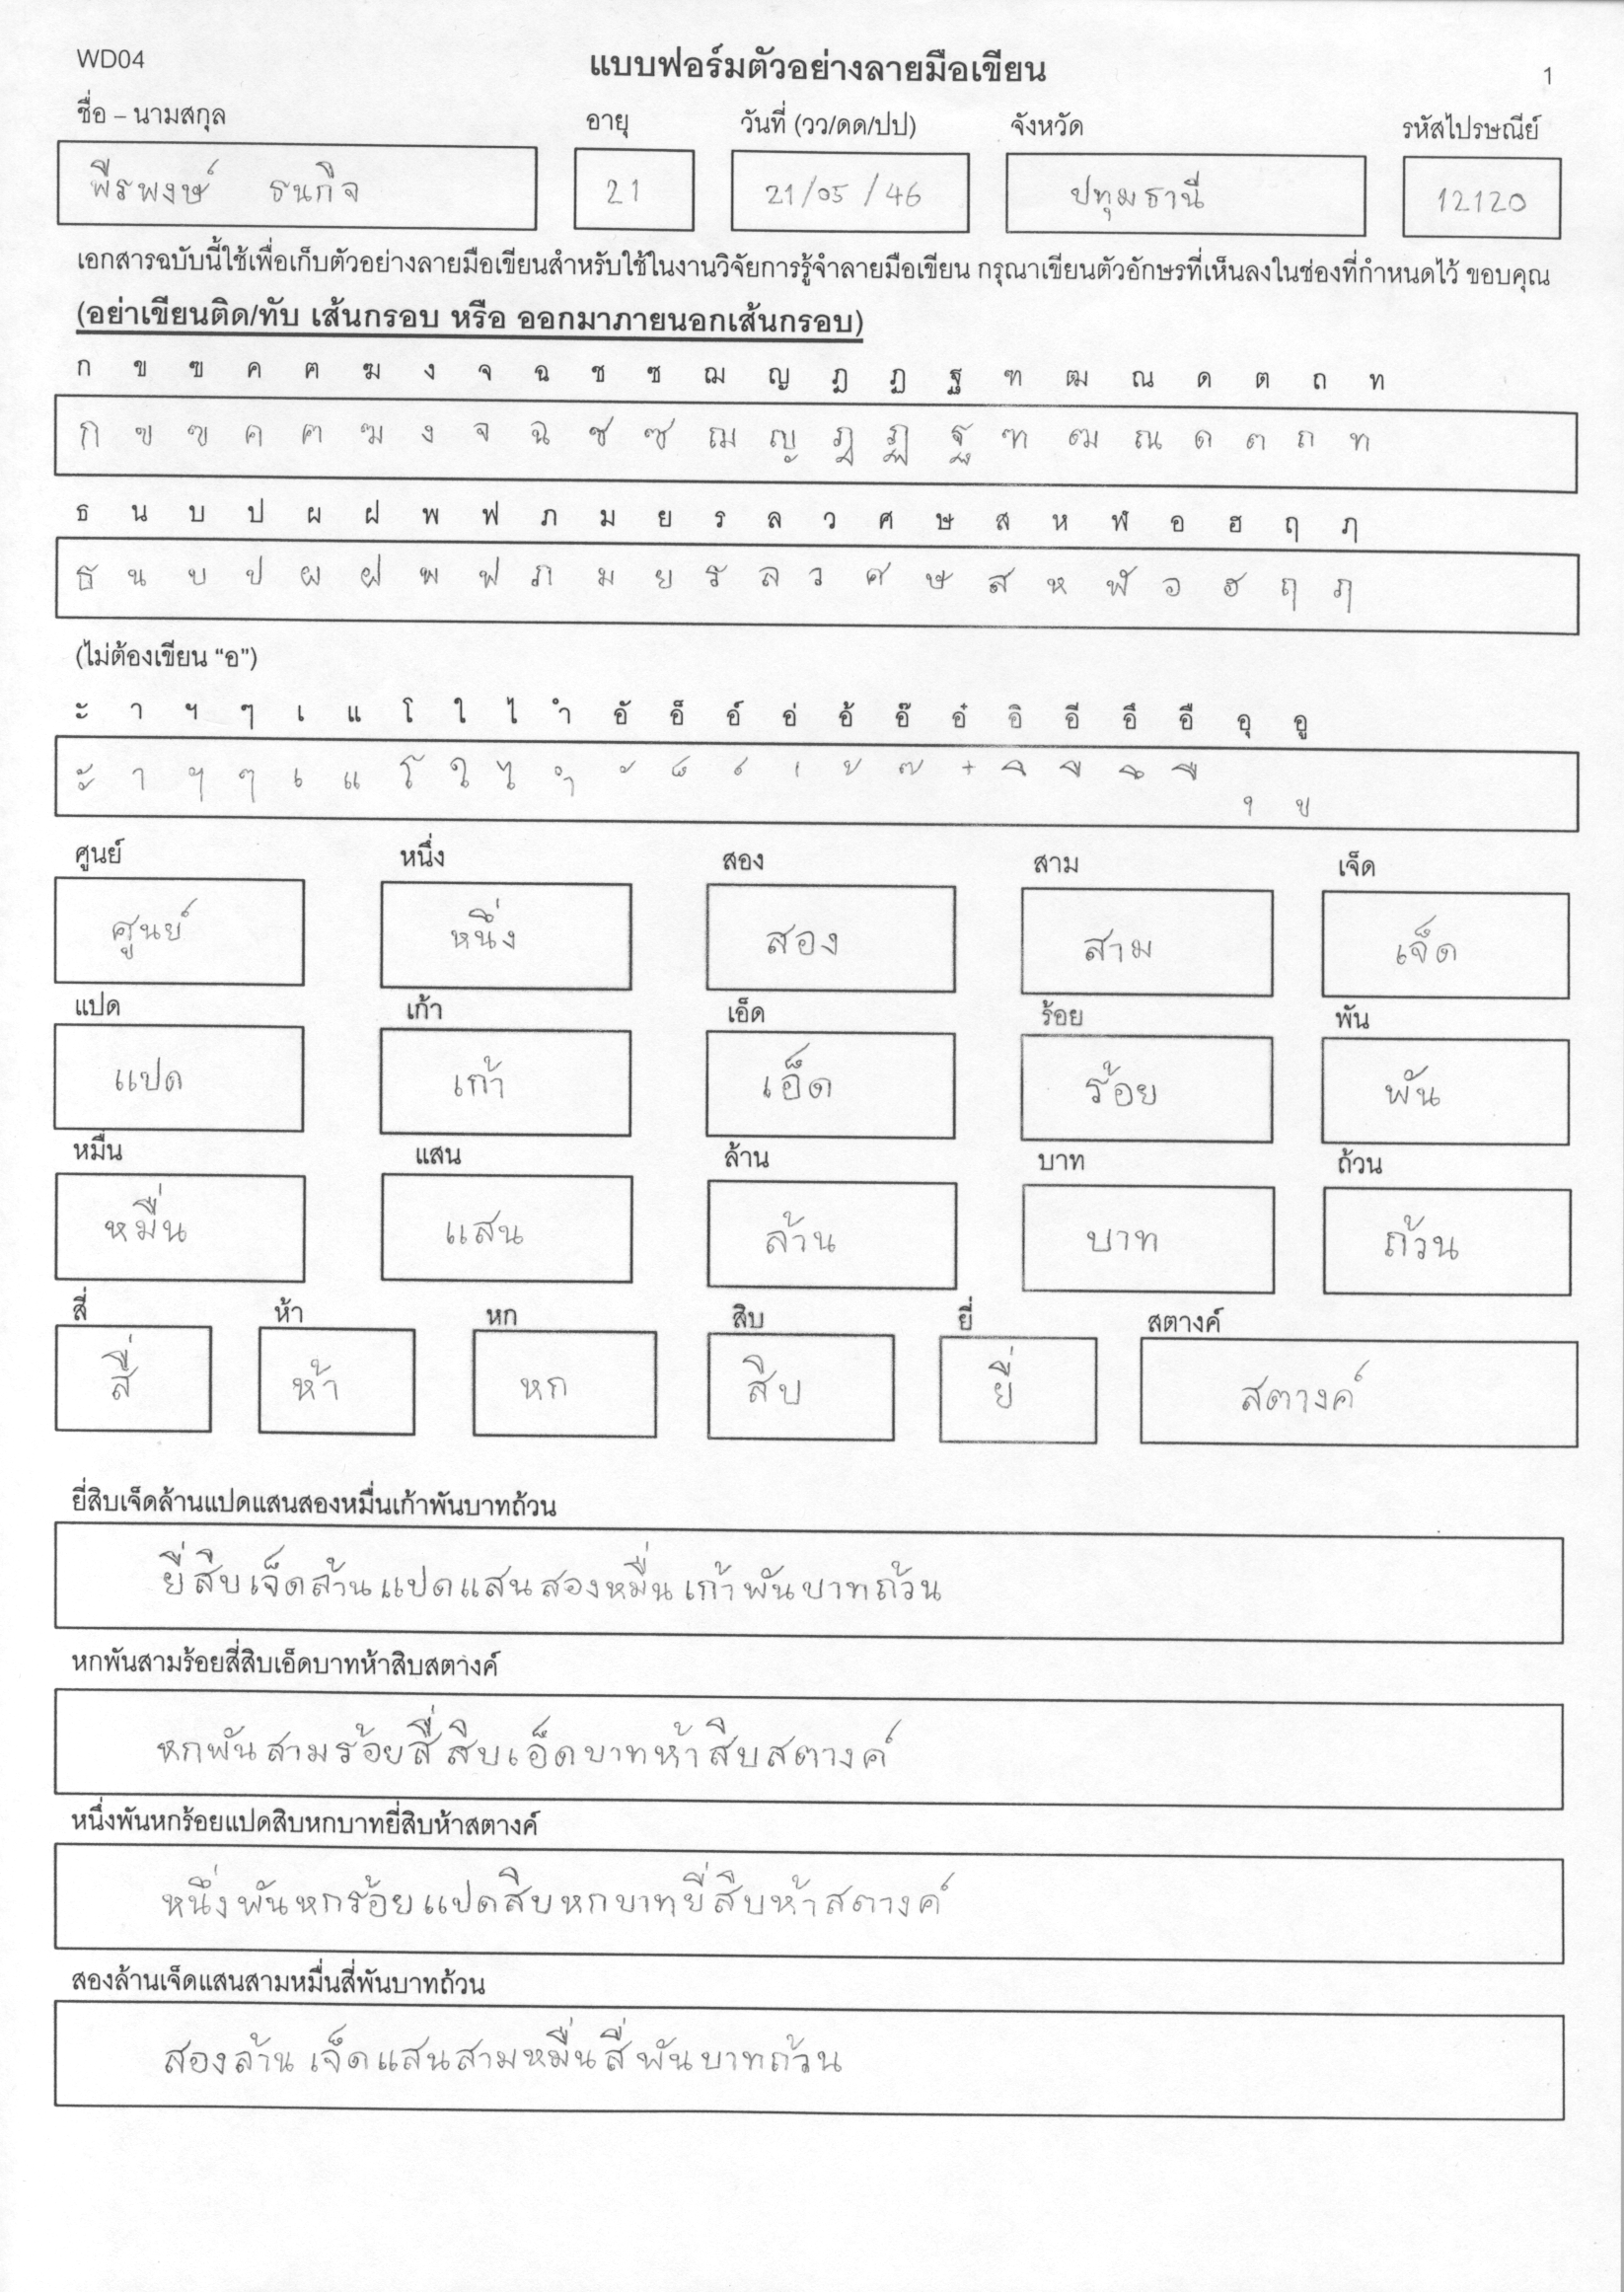 WD04
แบบฟอร์มตัวอย่างลายมือเขียน
1
ชื่อ – นามสกุล อายุ วันที่ (วว/ดด/ปป) จังหวัด รหัสไปรษณีย์
พีรพงษ์ ธนกิจ 21 21/05/46 ปทุมธานี 12120
เอกสารฉบับนี้ใช้เพื่อเก็บตัวอย่างลายมือเขียนสำหรับใช้ในงานวิจัยการรู้จำลายมือเขียน กรุณาเขียนตัวอักษรที่เห็นลงในช่องที่กำหนดไว้ ขอบคุณ
(อย่าเขียนติด/ทับ เส้นกรอบ หรือ ออกมาภายนอกเส้นกรอบ)
ก ข ฃ ค ฅ ฆ ง จ ฉ ช ซ ฌ ญ ฎ ฏ ฐ ฑ ฒ ณ ด ต ถ ท
ก ข ฃ ค ฅ ฆ ง จ ฉ ช ซ ฌ ญ ฎ ฏ ฐ ฑ ฒ ณ ด ต ถ ท
ธ น บ ป ผ ฝ พ ฟ ภ ม ย ร ล ว ศ ษ ส ห ฬ อ ฮ ฤ ฦ
ธ น บ ป ผ ฝ พ ฟ ภ ม ย ร ล ว ศ ษ ส ห ฬ อ ฮ ฤ ฦ
(ไม่ต้องเขียน “อ”)
ะ า ฯ ๆ เ แ โ ใ ไ ำ อั อ็ อ์ อ่ อ้ อ๊ อ๋ อิ อี อึ อื อุ อู
ะ า ฯ ๆ เ แ โ ใ ไ ำ ั ็ ์ ่ ้ ๊ ๋ ิ ี ึ ื ุ ู
ศูนย์ หนึ่ง สอง สาม เจ็ด
ศูนย์ หนึ่ง สอง สาม เจ็ด
แปด เก้า เอ็ด ร้อย พัน
แปด เก้า เอ็ด ร้อย พัน
หมื่น แสน ล้าน บาท ถ้วน
หมื่น แสน ล้าน บาท ถ้วน
สี่ ห้า หก สิบ ยี่ สตางค์
สี่ ห้า หก สิบ ยี่ สตางค์
ยี่สิบเจ็ดล้านแปดแสนสองหมื่นเก้าพันบาทถ้วน
ยี่สิบเจ็ดล้านแปดแสนสองหมื่นเก้าพันบาทถ้วน
หกพันสามร้อยสี่สิบเอ็ดบาทห้าสิบสตางค์
หกพันสามร้อยสี่สิบเอ็ดบาทห้าสิบสตางค์
หนึ่งพันหกร้อยแปดสิบหกบาทยี่สิบห้าสตางค์
หนึ่งพันหกร้อยแปดสิบหกบาทยี่สิบห้าสตางค์
สองล้านเจ็ดแสนสามหมื่นสี่พันบาทถ้วน
สองล้านเจ็ดแสนสามหมื่นสี่พันบาทถ้วน